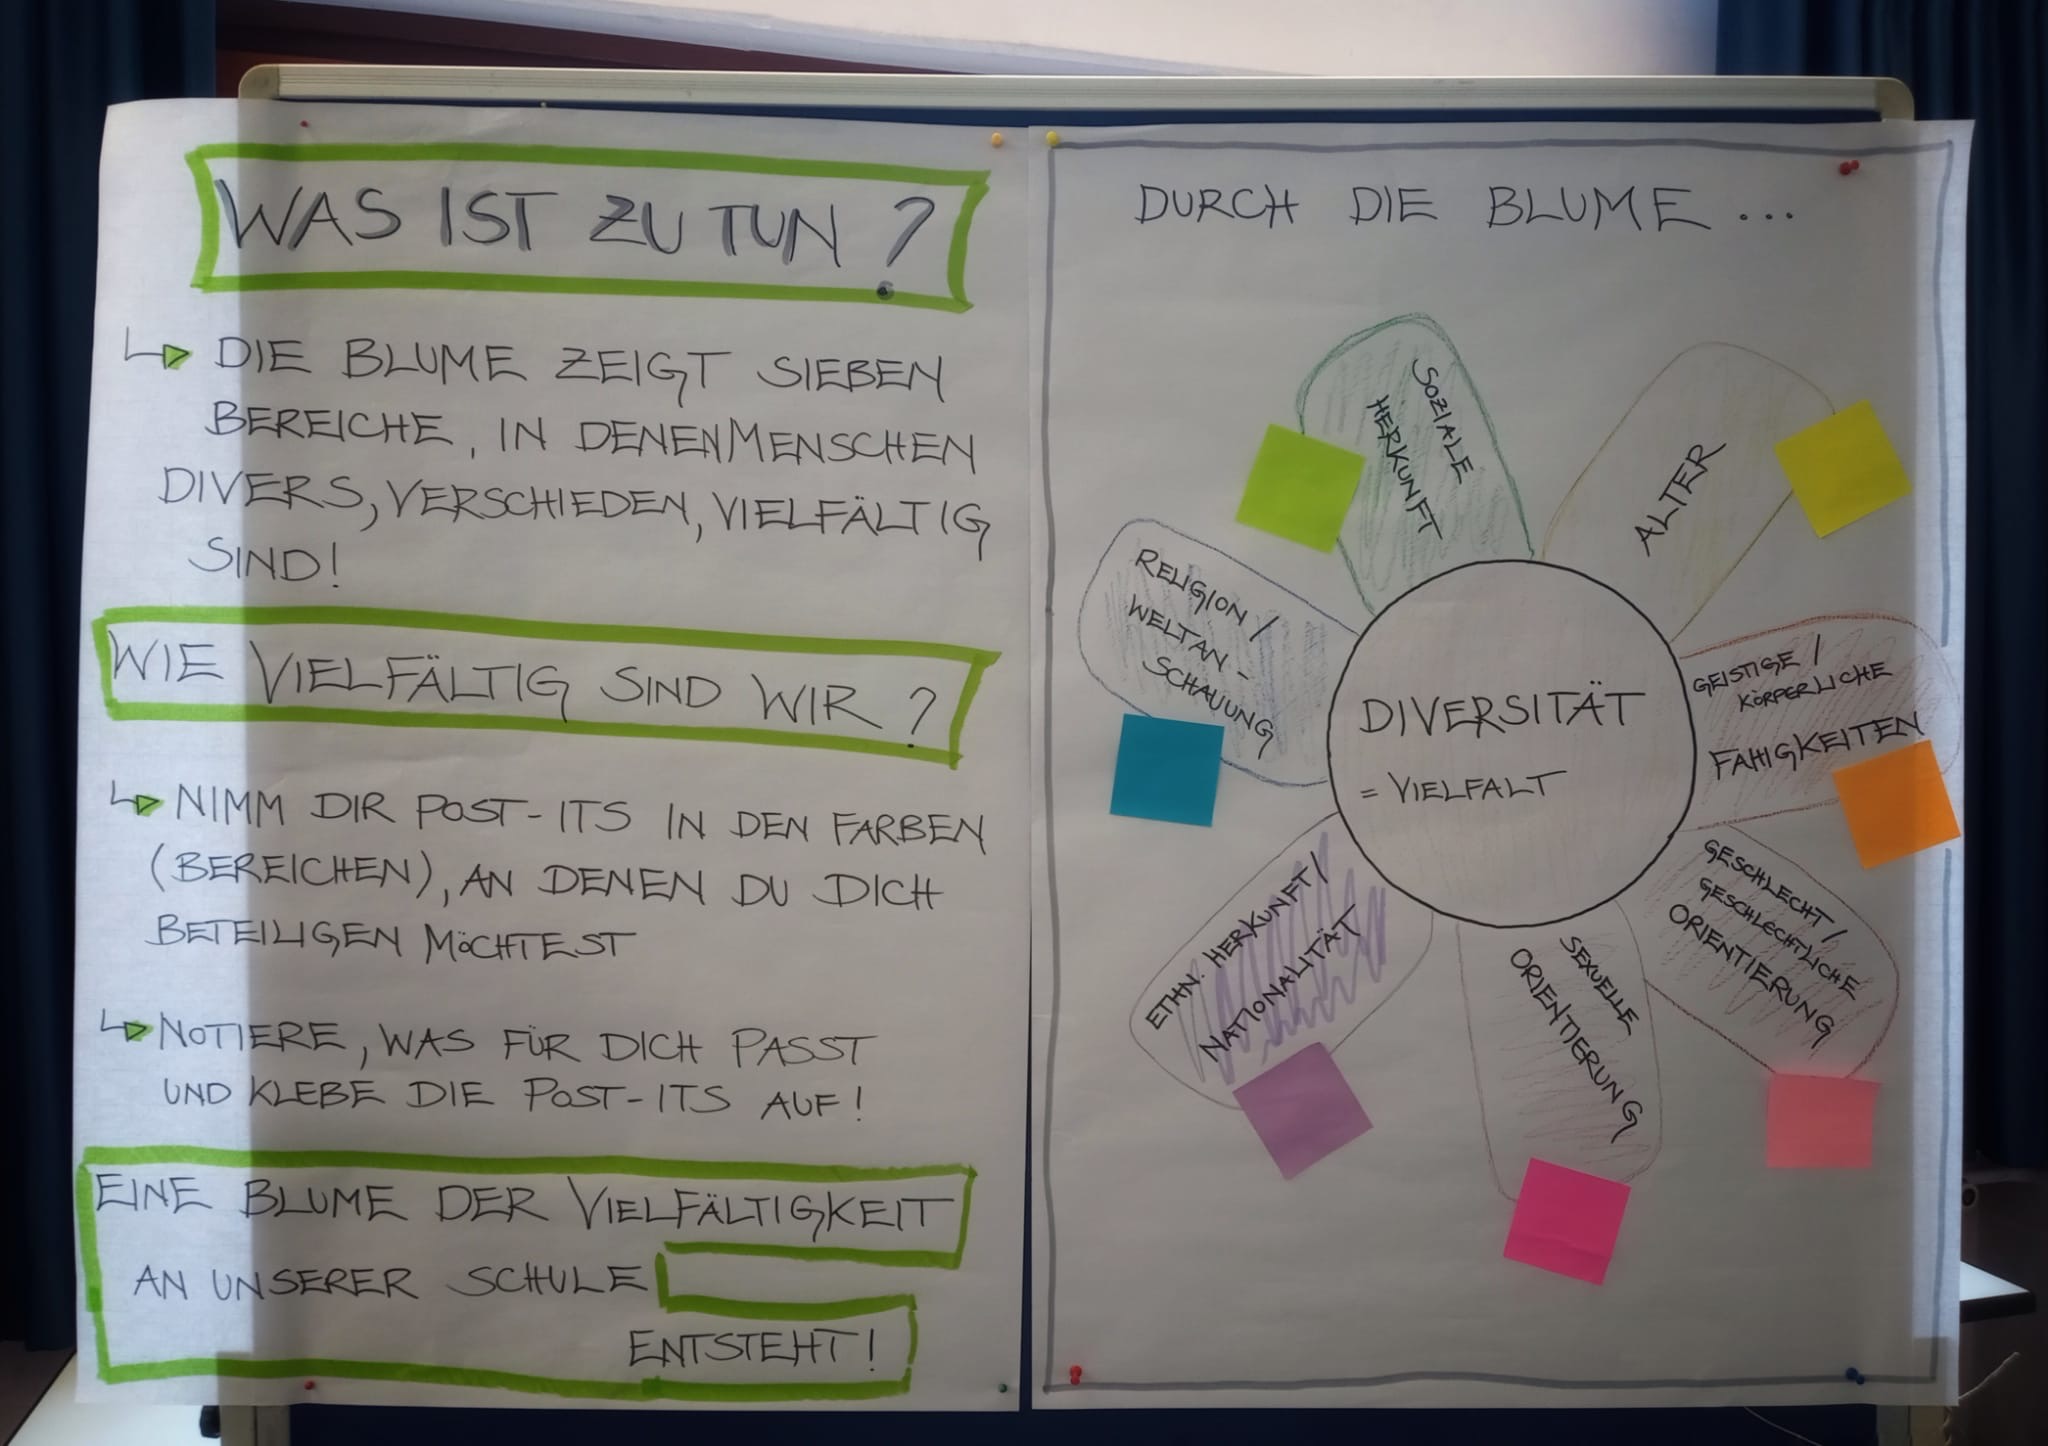 WAS IST ZU TUN?
DIE BLUME ZEIGT SIEBEN
BEREICHE, IN DENEN MENSCHEN
DIVERS, VERSCHIEDEN, VIELFÄLTIG
SIND!
WIE VIELFÄLTIG SIND WIR?
NIMM DIR POST-ITS IN DEN FARBEN
(BEREICHEN), AN DENEN DU DICH
BETEILIGEN MÖCHTEST
NOTIERE, WAS FÜR DICH PASST
UND KLEBE DIE POST-ITS AUF!
EINE BLUME DER VIELFÄLTIGKEIT
AN UNSERER SCHULE
ENTSTEHT!
DURCH DIE BLUME ...
SOZIALE
HERKUNFT
ALTER
RELIGION /
WELTAN-
SCHAUUNG
GEISTIGE /
KÖRPERLICHE
FÄHIGKEITEN
DIVERSITÄT
= VIELFALT
ETHN. HERKUNFT /
NATIONALITÄT
SEXUELLE
ORIENTIERUNG
GESCHLECHT /
GESCHLECHTLICHE
ORIENTIERUNG